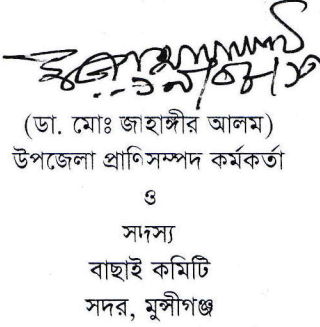 (ডা. মোঃ জাহাঙ্গীর আলম)
উপজেলা প্রাণিসম্পদ কর্মকর্তা
ও
সদস্য
বাছাই কমিটি
সদর, মুন্সীগঞ্জ